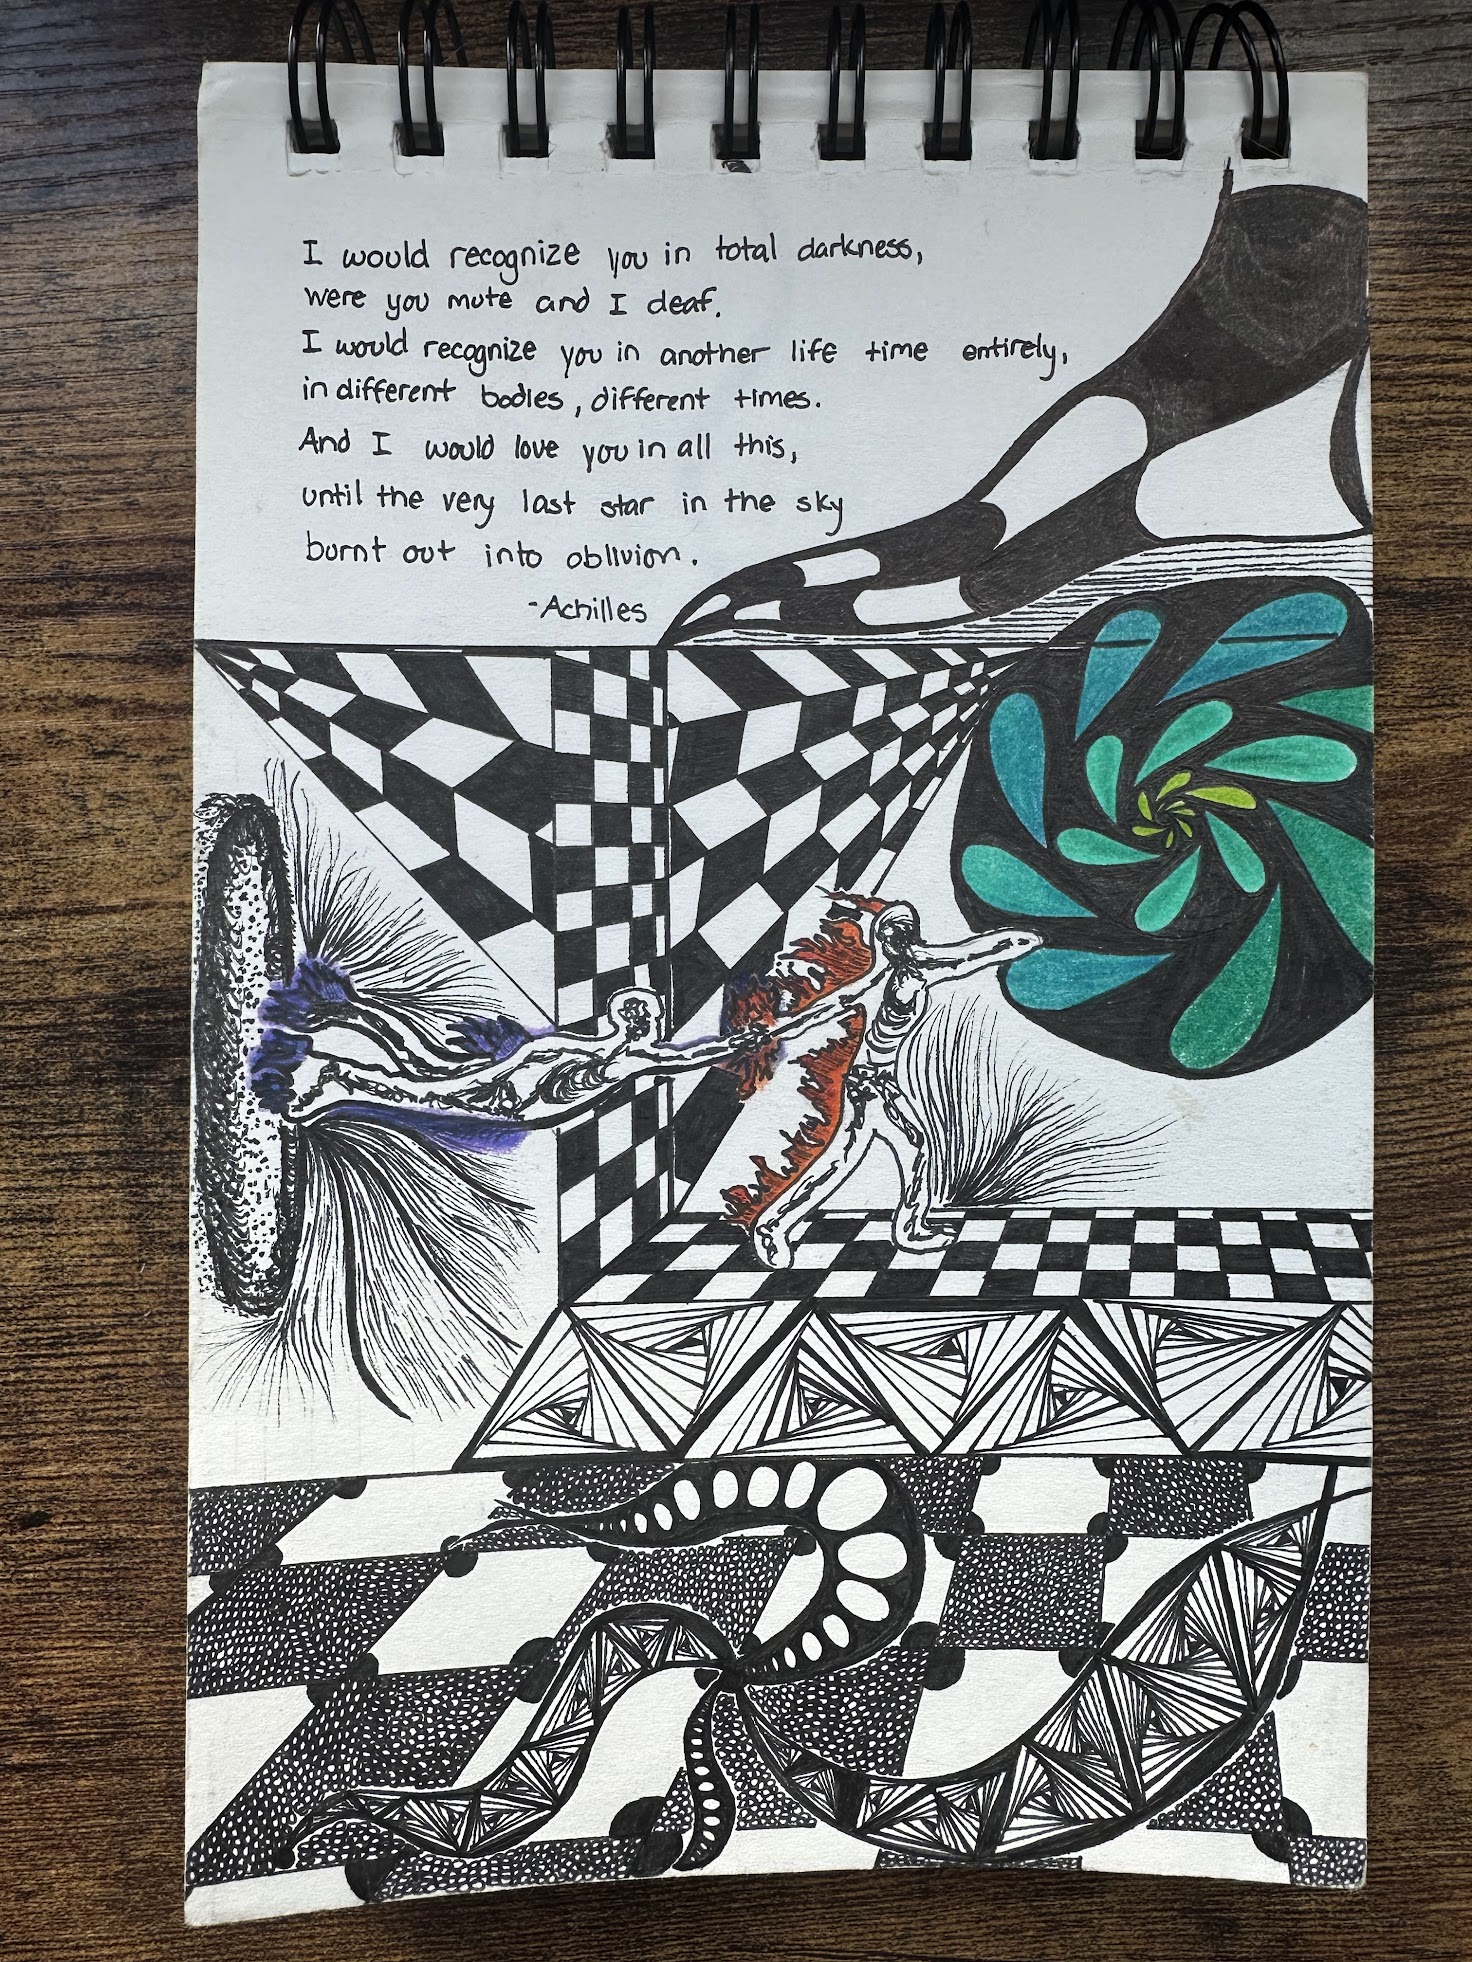 I would recognize you in total darkness,
were you mute and I deaf.
I would recognize you in another life time entirely,
in different bodies, different times.
And I would love you in all this,
until the very last star in the sky
burnt out into oblivion.
-Achilles